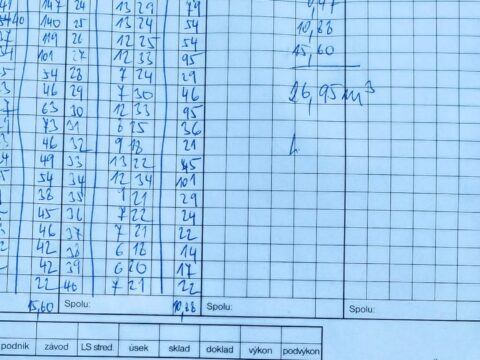 147 24 13 29 79 0,47
140 25 13 24 54 10,88
119 26 12 25 54 15,60
101 27 12 33 95
54 28 7 24 29 26,95 m³
46 29 7 30 46
63 30 12 33 95
73 31 8 25 36
46 32 9 18 21
49 33 13 22 45
54 34 12 34 101
38 35 9 21 29
45 36 7 22 24
46 37 7 21 22
42 38 6 18 14
42 39 6 20 17
22 40 7 21 22
15,60 Spolu: 10,88 Spolu: Spolu:
podnik závod LS stred. úsek sklad doklad výkon podvýkon